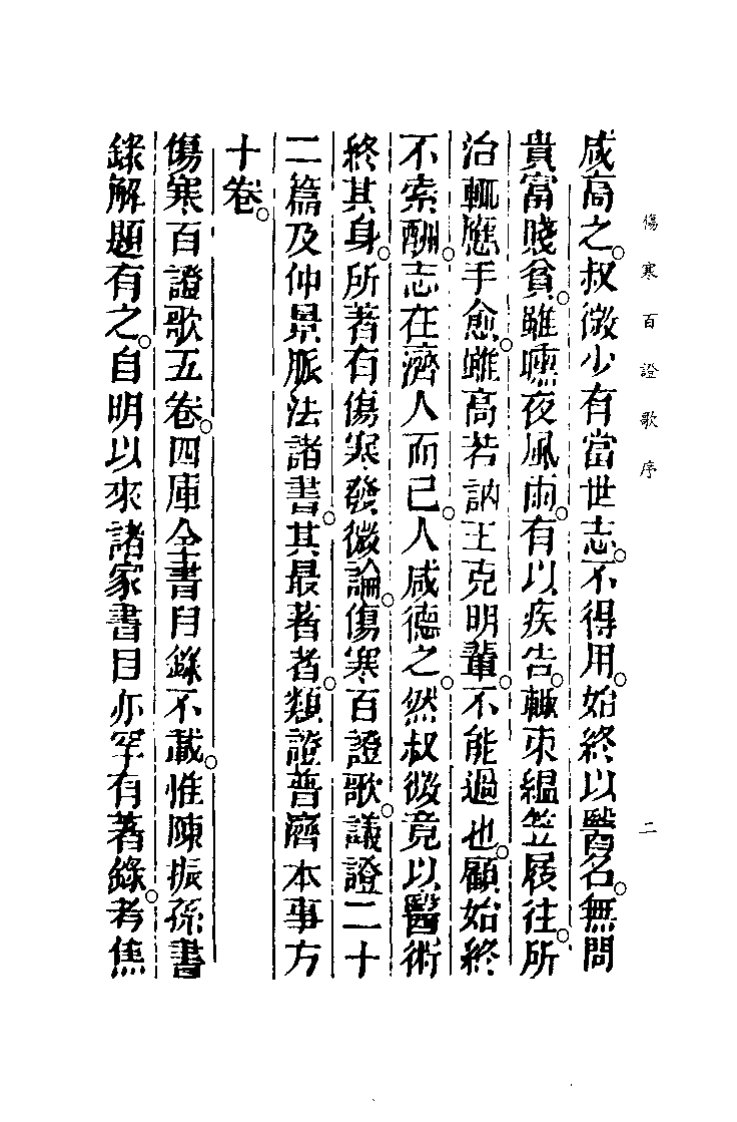 傷寒百證歌序　二
咸高之。叔微少有當世志。不得用。始終以醫名。無問
貴富賤貧。雖曛夜風雨。有以疾告。輒束縕笠屐往。所
治輒應手愈。雖高若訥王克明輩。不能過也。顧始終
不索酬。志在濟人而已。人咸德之。然叔微竟以醫術
終其身。所著有傷寒發微論。傷寒百證歌。議證二十
二篇及仲景脈法諸書。其最著者。類證普濟本事方
十卷。
傷寒百證歌五卷。四庫全書目錄不載。惟陳振孫書
錄解題有之。自明以來諸家書目亦罕有著錄。考焦